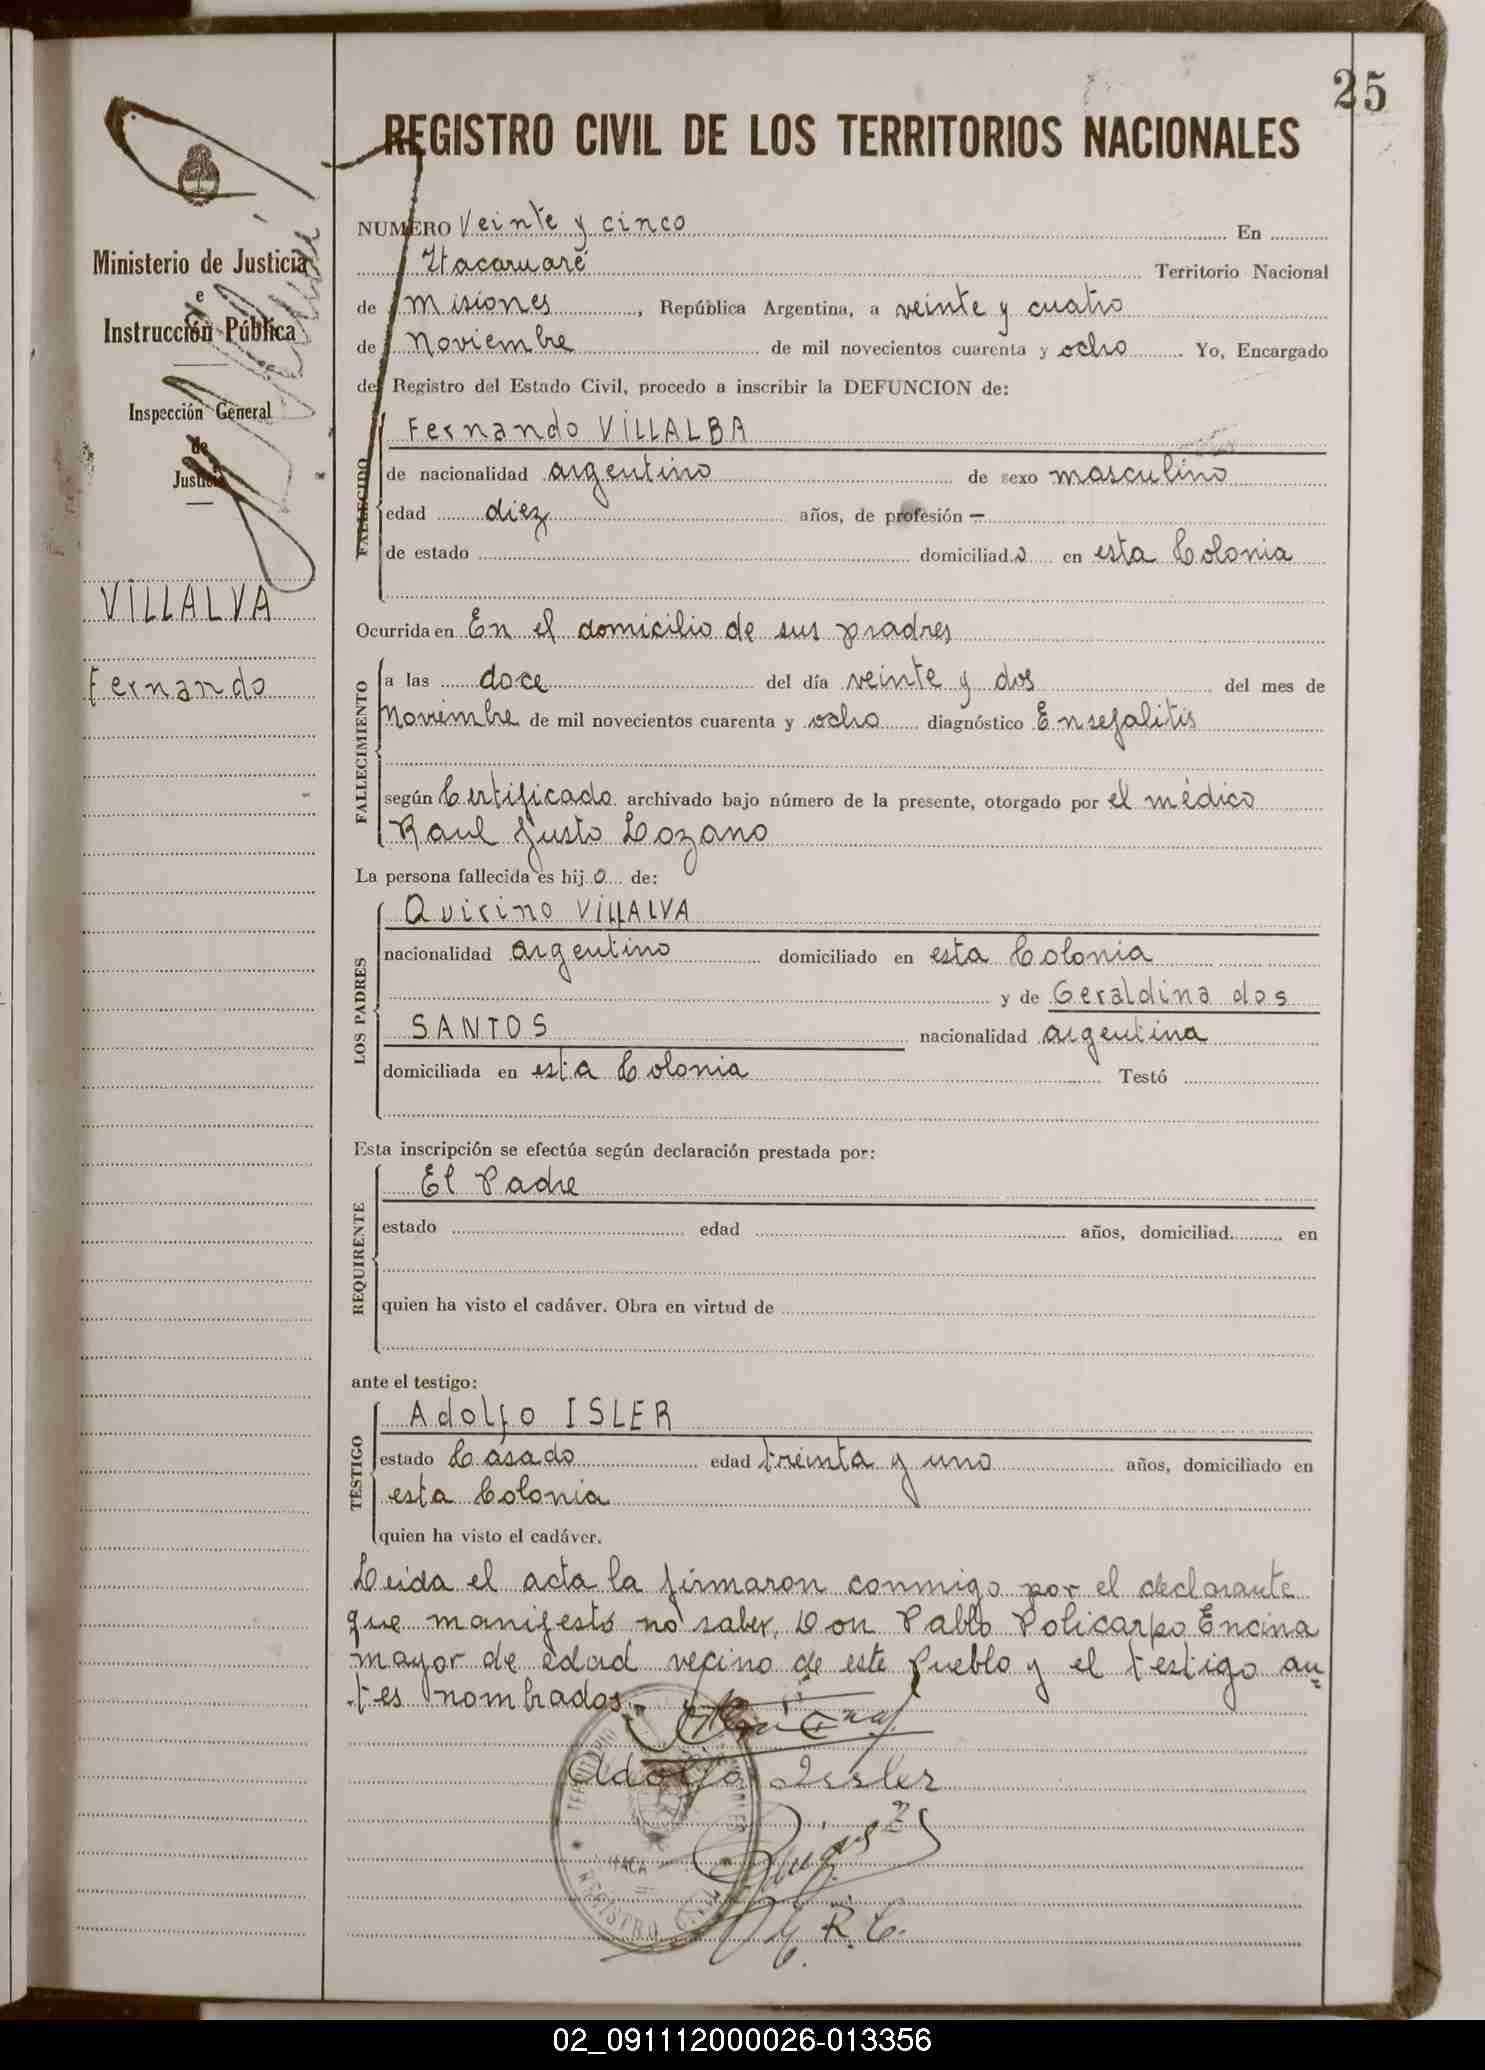 25
REGISTRO CIVIL DE LOS TERRITORIOS NACIONALES
Ministerio de Justicia
e
Instrucción Pública
Inspección General
de
Justicia
VILLALVA
Fernando
NUMERO Veinte y cinco En
Itacaruaré Territorio Nacional
de Misiones, República Argentina, a veinte y cuatro
de Noviembre de mil novecientos cuarenta y ocho. Yo, Encargado
del Registro del Estado Civil, procedo a inscribir la DEFUNCION de:
FALLECIDO
Fernando VILLALBA
de nacionalidad argentino de sexo masculino
edad diez años, de profesión —
de estado domiciliado en esta Colonia
Ocurrida en En el domicilio de sus pradres
FALLECIMIENTO
a las doce del día veinte y dos del mes de
Noviembre de mil novecientos cuarenta y ocho diagnóstico Ensefalitis
según Certificado archivado bajo número de la presente, otorgado por el médico
Raul Justo Lozano
La persona fallecida es hijo de:
LOS PADRES
Quirino VILLALVA
nacionalidad argentino domiciliado en esta Colonia
y de Geraldina dos
SANTOS nacionalidad argentina
domiciliada en esta Colonia Testó
Esta inscripción se efectúa según declaración prestada por:
REQUIRENTE
El Padre
estado edad años, domiciliad en
quien ha visto el cadáver. Obra en virtud de
ante el testigo:
TESTIGO
Adolfo ISLER
estado Casado edad treinta y uno años, domiciliado en
esta Colonia
quien ha visto el cadáver.
Leida el acta la firmaron conmigo por el declarante
que manifestó no saber, Don Pablo Policarpo Encina
mayor de edad vecino de este Pueblo y el testigo an=
tes nombrados.-
Adolfo Issler
REGISTRO CIVIL
R. C.
02_091112000026-013356